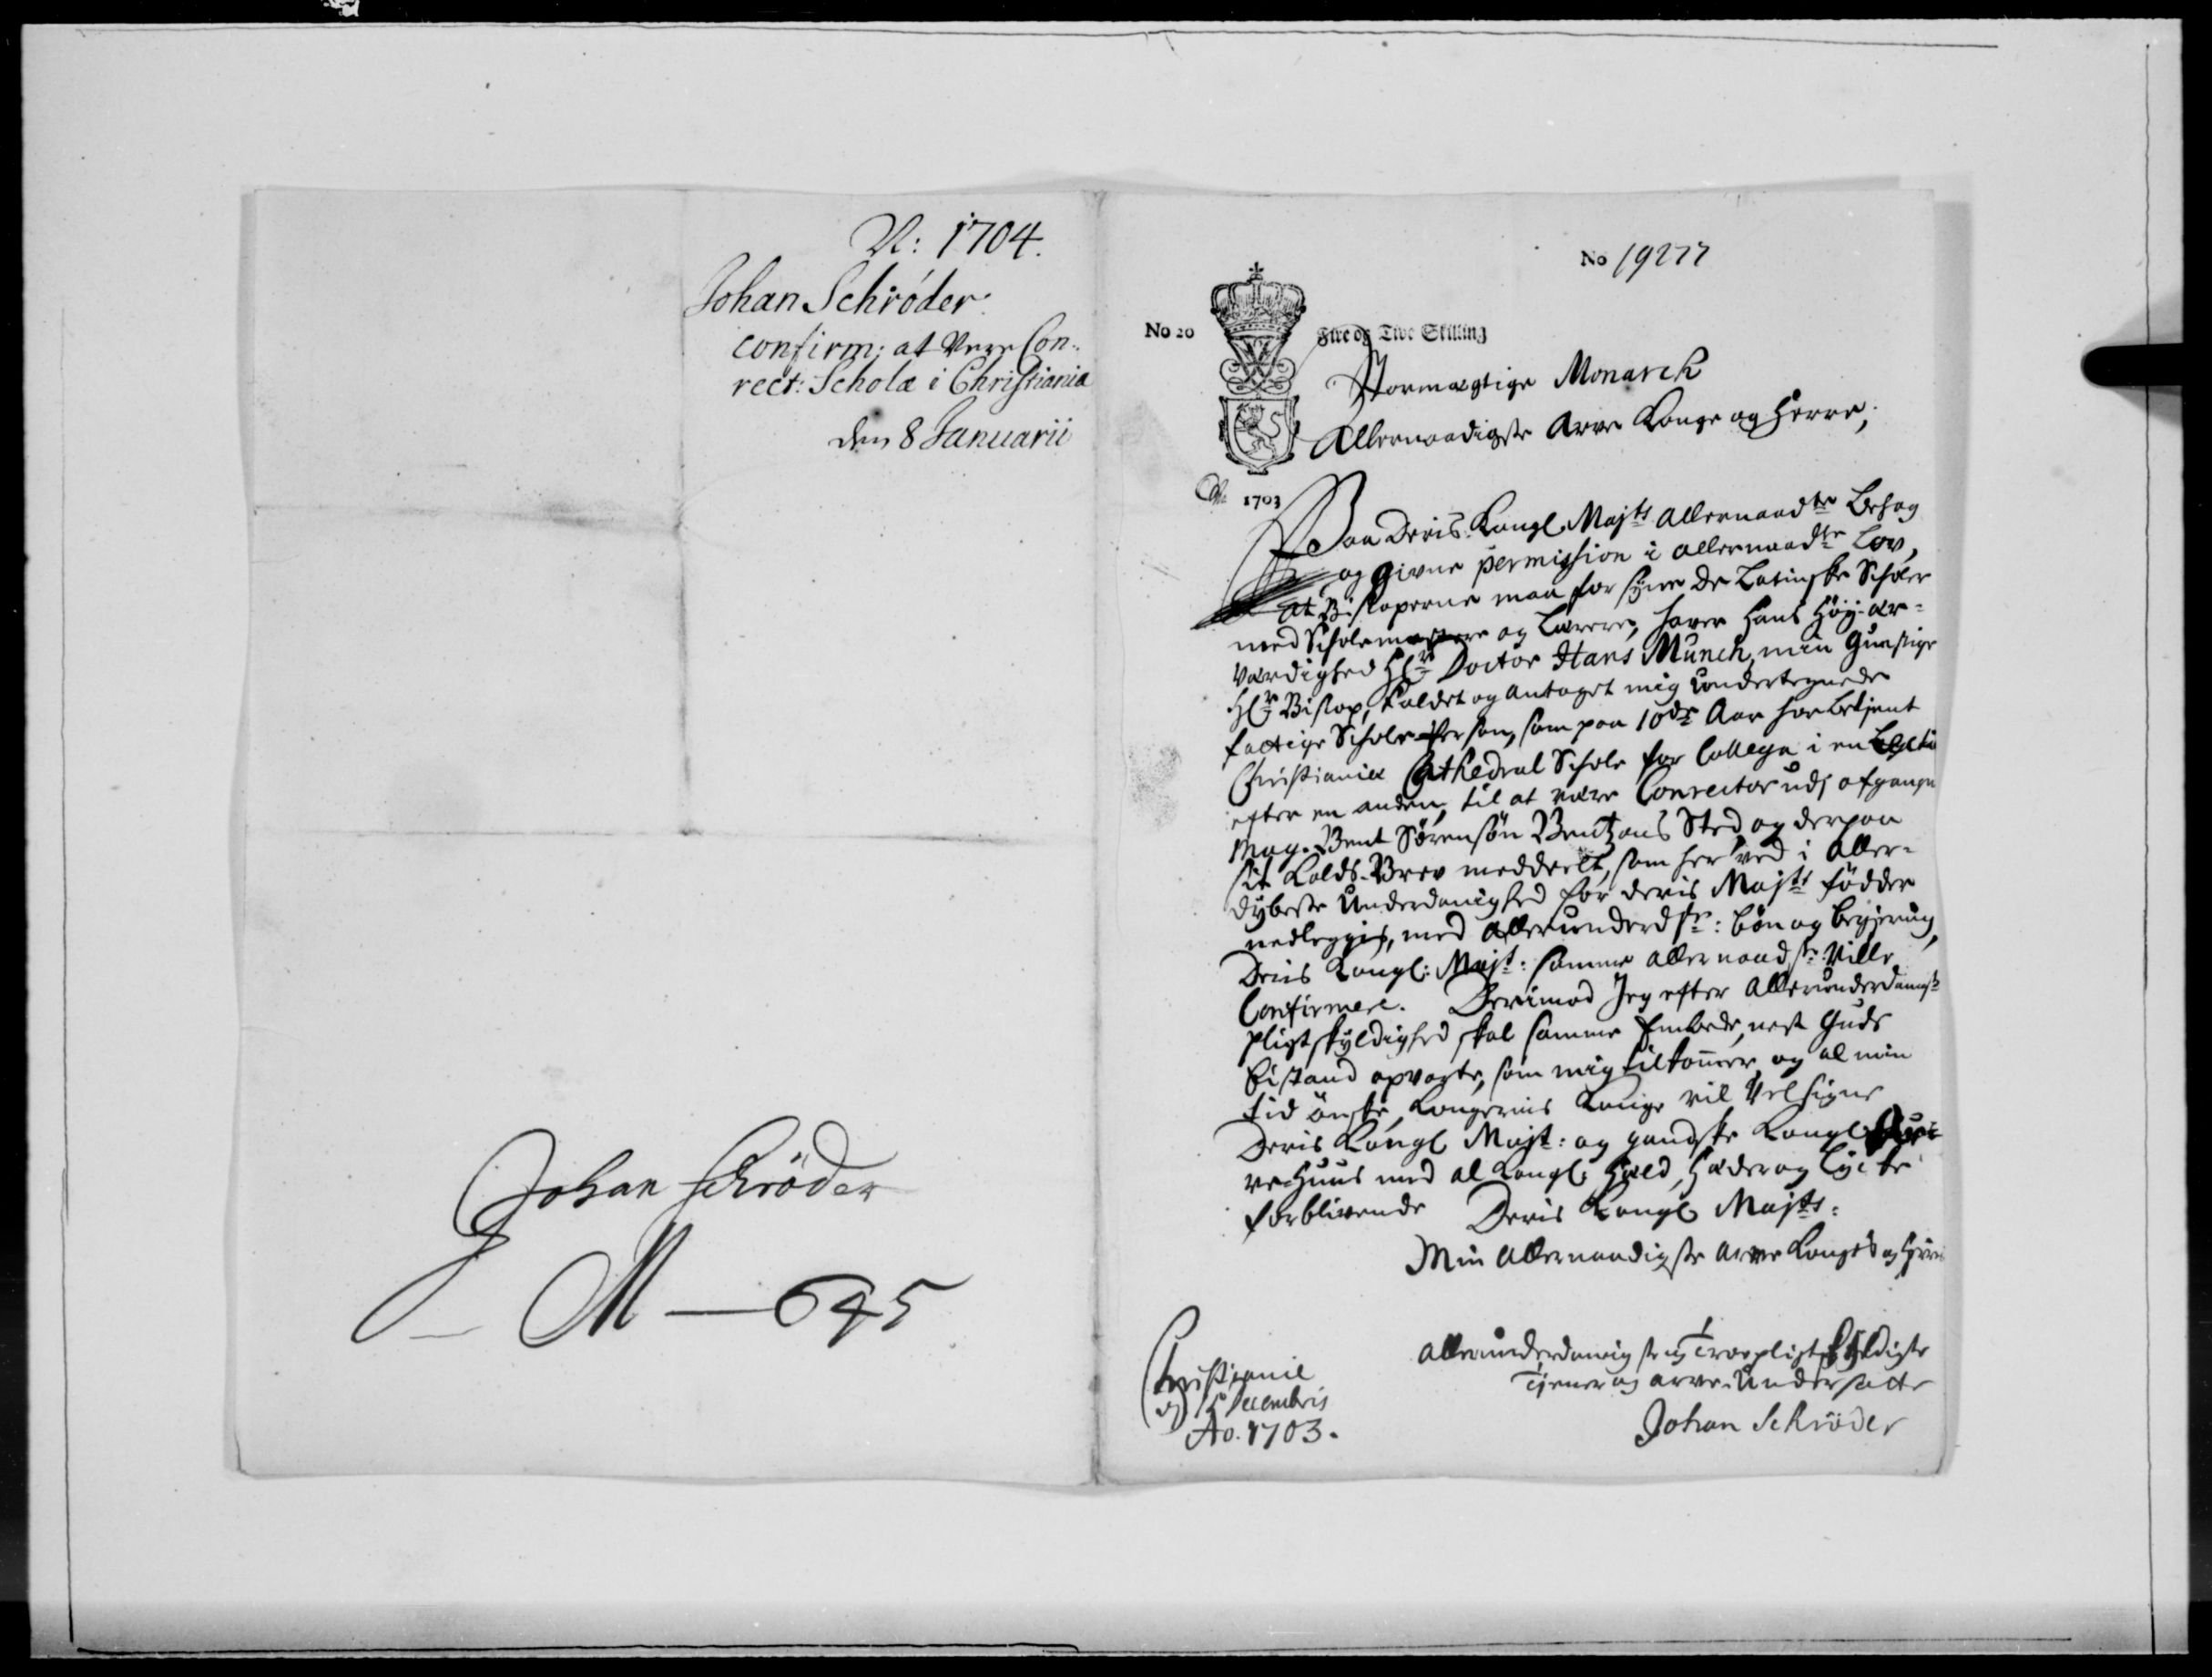 N: 1704.
Johan Schröder
confirm: at Være Con-
rect: Scholæ i Christiania
den 8 Januarii
Johan Schröder
M — 695
No 19277
No 20
Fire og Tive Skilling
Stormægtige Monarch
Allernaadigste Arve Konge og Herre,
Ao 1703
Paa Deris Kongl. Majts allernaadte Behag
og givne permission i allernaadte Lov,
at Biskoperne maa forsyne de Latinske Scholer
med Scholemestere og Lærere, haver Hans Høy-ær-
værdighed Hr Doctor Hans Munch, min Gunstige
Hr Biskop, kaldet og antaget mig undertegnede
fattige Schole-Person, som paa 10de Aar har betient
Christianiæ Cathedral Schole for Collega i en Lectie
efter en anden, til at være Conrector udj afgangne
Mag. Bent Sørensøn Bentzons Sted, og derpaa
sit Kalds-Brev meddeelt, som her ved i Aller-
dybeste Underdanighed for deris Majts fødder
nedlegges, med Allerunderdste: bøn og begiering,
Deris Kongl: Majt: samme allernaadste Ville
Confirmere. Derimod Jeg efter Allerunderdanigste
pligtskyldighed skal samme Embede, nest Guds
bistand opvarte, som mig tilkommer, og al min
tid ønske, Kongernis Konge vil Velsigne
Deris Kongl Majt: og gandske Kongl Arf-
ve-Huus med al Kongl: Held, Hæder og Lycke
forblivende Deris Kongl Majts:
Min Allernaadigste Arve Konges og Herris
Christianiæ
dj 15 Decembris
Ao. 1703.
allerunderdanigste og Troepligtskyldigste
Tiener og arve-Undersatte
Johan Schröder